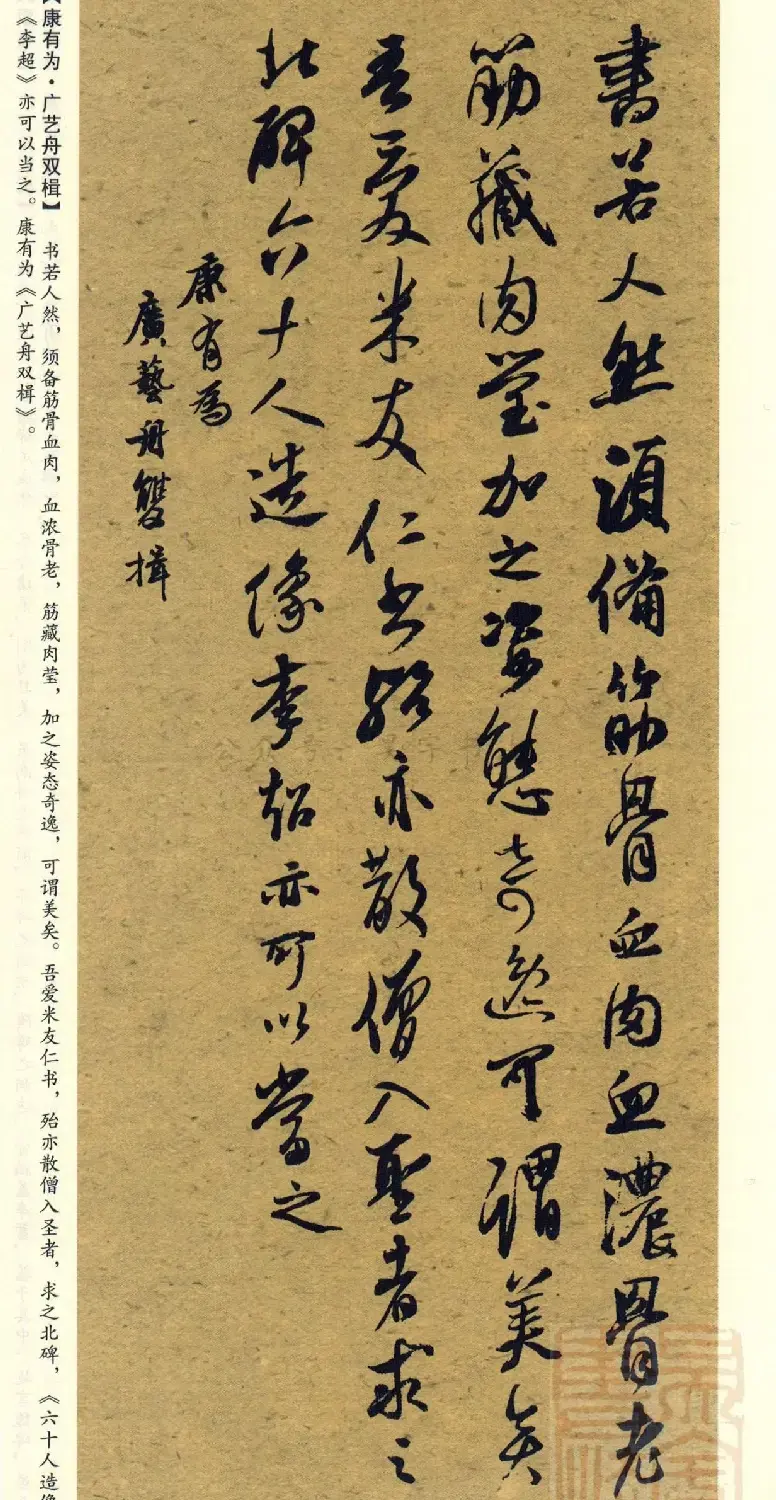 書若人然須備筋骨血肉血濃骨老
筋藏肉瑩加之姿態奇逸可謂美矣
吾愛米友仁书殆亦散僧入聖者求之
北碑六十人造像李超亦可以當之
康有為
廣藝舟雙楫
【康有为·广艺舟双楫】 书若人然，须备筋骨血肉，血浓骨老，筋藏肉莹，加之姿态奇逸，可谓美矣。吾爱米友仁书，殆亦散僧入圣者，求之北碑，《六十人造像
《李超》亦可以当之。康有为《广艺舟双楫》。